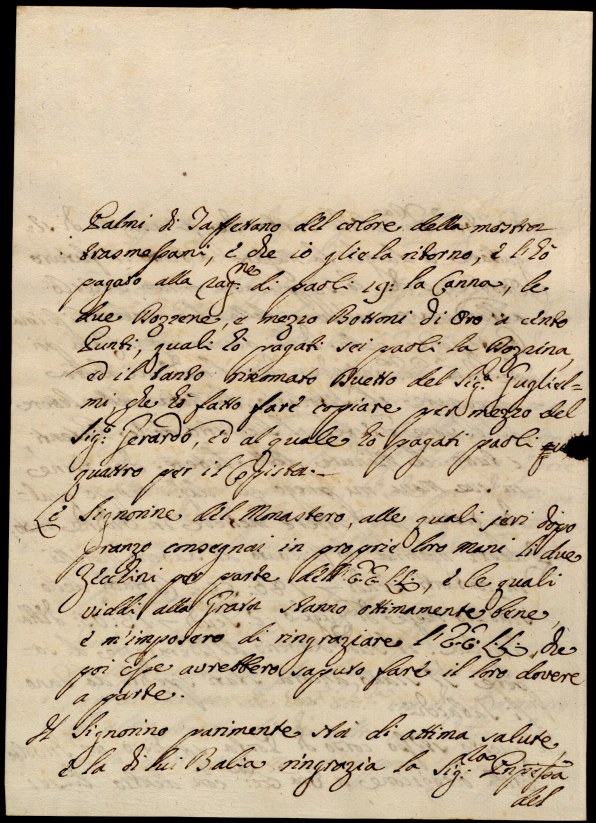 Palmi di Taffettano del colore della mostra
trasmessami, e che io gliela ritorno, e l'hò
pagato alla ragne. di paoli 19: la Canna, le
due Dozzene, e mezzo Bottoni di Oro a cento
Punti, quali hò pagati sei paoli la Dozzina,
ed il tanto rinomato Duetto del Sigr. Gugliel=
mi che hò fatto fare copiare per mezzo del
Sigr. Gerardo, ed al quale hò pagati paoli
quattro per il Copista.
Le Signorine del Monastero, alle quali jeri dopo
pranzo consegnai in proprie loro mani li due
Zecchini per parte dell'EE. LL., e le quali
viddi alla Grata stanno ottimamente bene,
e m'imposero di ringraziare l'EE. LL., che
poi esse avrebbero saputo fare il loro dovere
a parte.
Il Signorino parimente stà di ottima salute,
e la di lui Balia ringrazia la Sigra. Pnpessa
del